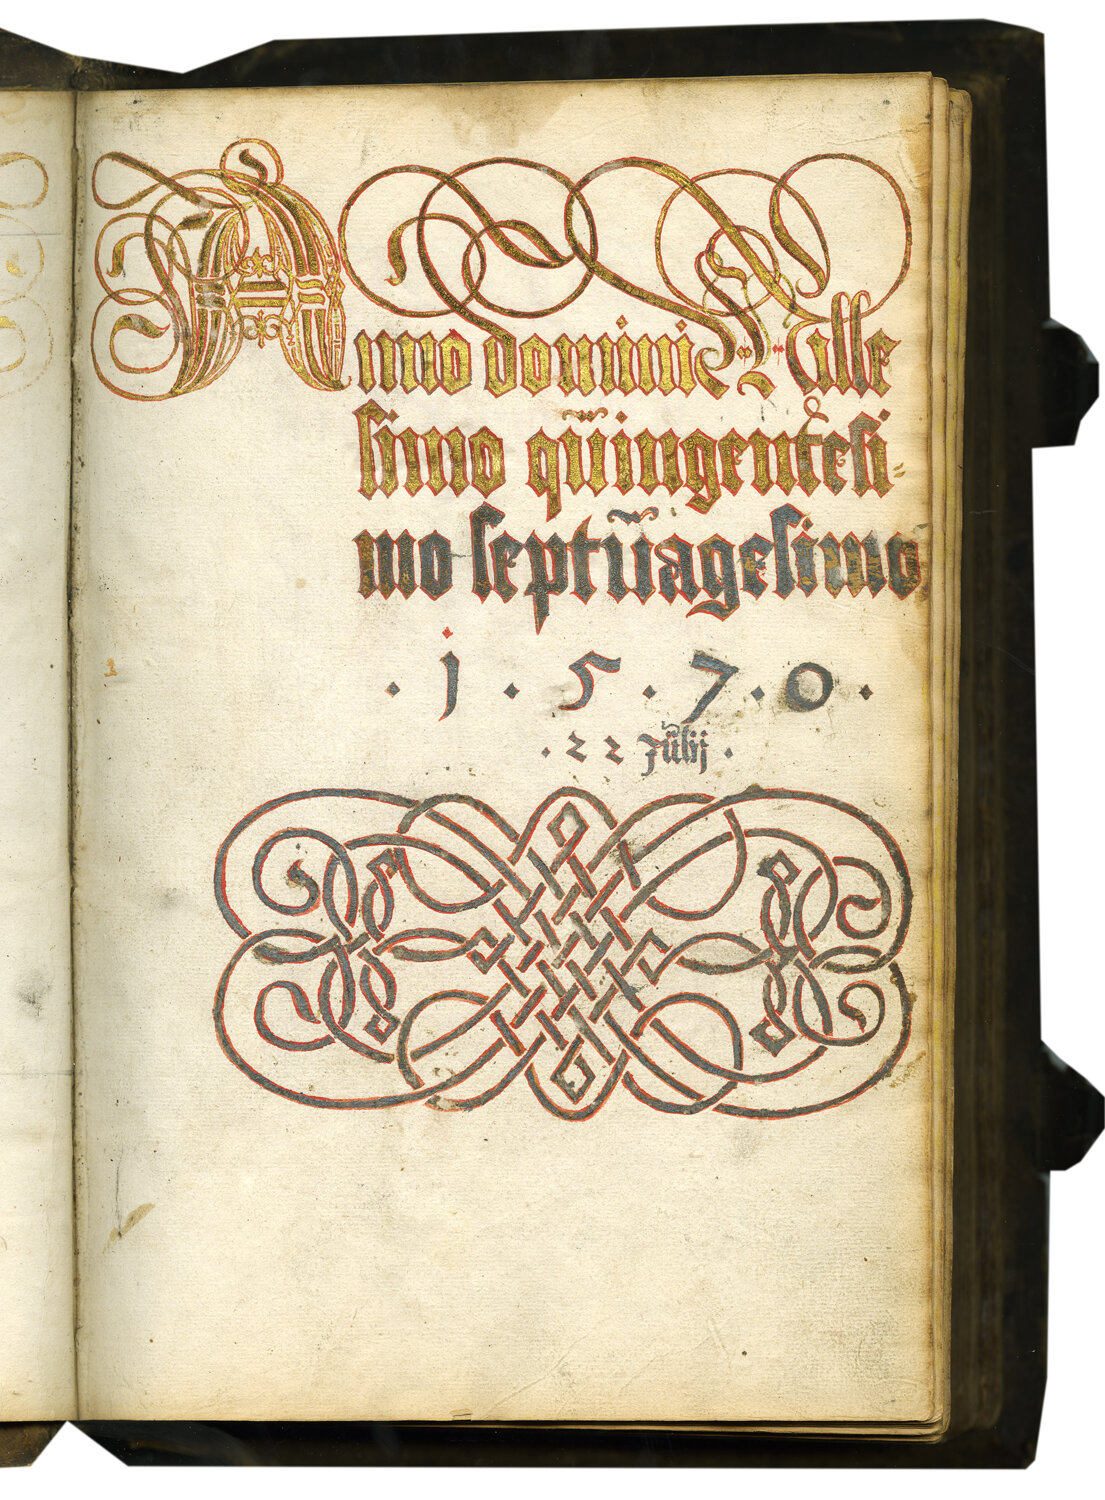 Anno domini Mille
simo quingentesi-
mo septuagesimo
· j · 5 · 7 · 0 ·
· 22 Julij ·